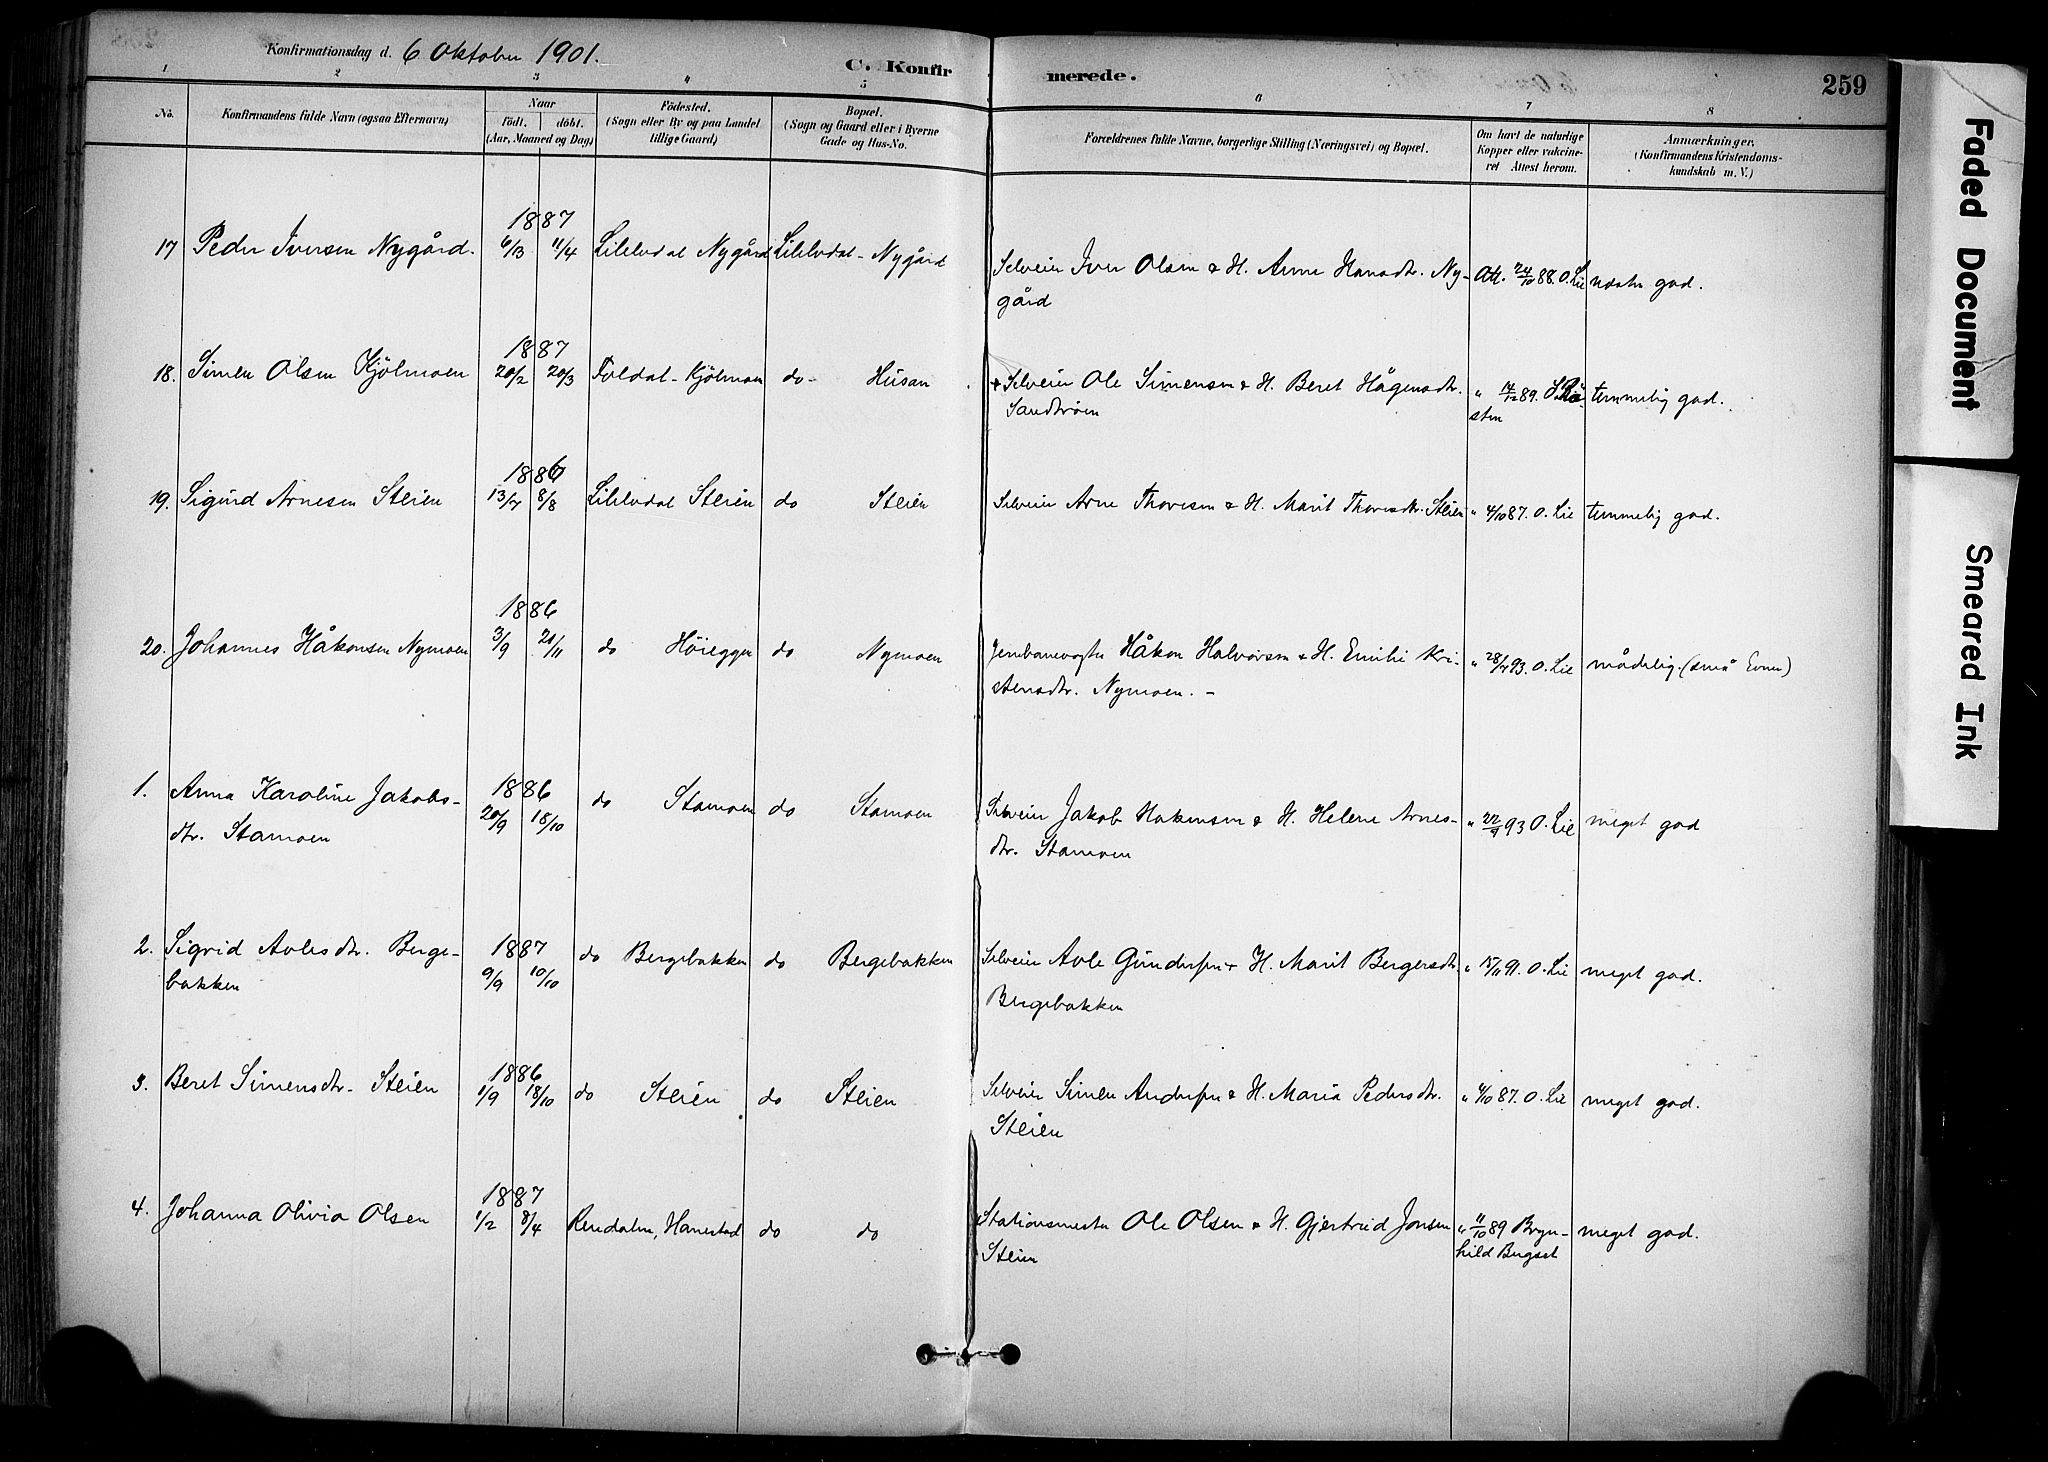 Konfirmationsdag d. 6 Oktober 1901.
C. Konfirmerede.
259
1 2 3 " 5 6 7 8
No.
Konfirmandens fulde Navn (ogsaa Efternavn)
Naar
födt. döbt.
(Aar, Maaned og Dag)
Födested.
(Sogn eller By og paa Landet
tillige Gaard)
Bopæl.
(Sogn og Gaard eller i Byerne
Gade og Hus-No.
Forældrenes fulde Navne, borgerlige Stilling (Næringsvei) og Bopæl.
Om havt de naturlige
Kopper eller vakcine-
ret Attest herom.
Anmærkninger,
(Konfirmandens Kristendoms-
kundskab m. V.)
1887
17 Peder Iversen Nygård. 6/3 11/4 Lilelvdal Nygård Lilelvdal - Nygård Selveier Iver Olsen & H. Anne Hansdtr. Ny- Att. 24/10 88. O. Lie næsten god.
gård
1887
18. Simen Olsen Kjölmoen 20/2 20/3 Foldal - Kjölmoen do - Husan Selveier Ole Simensen & H. Beret Hågensdtr. " 14/12 89. temmelig god.
Sandtrøen sten
1886
19. Sigurd Arnesen Steien 13/7 8/8 Lilelvdal Steien do Steien Selveier Arne Thoresen & H. Marit Thoresdtr. Steien " 4/10 87. O. Lie temmelig god.
1886
20. Johannes Håkonsen Nymoen 3/9 20/11 do Höiegger do Nymoen Jernbanevogter Håkon Halvorsen & H. Emilie Kri- " 28/7 93. O. Lie mådelig. (små Evner)
stensdtr. Nymoen. -
1886
1. Anna Karoline Jakobs- 20/9 18/10 do Stamoen do Stamoen Selveier Jakob Hakensen & H. Helene Arnes- " 22/9 93 O. Lie meget god
dtr. Stamoen dtr. Stamoen
1887
2. Sigrid Avlesdtr. Berge- 9/9 10/10 do Bergebakken do Bergebakken Selveier Avle Gundersen & H. Marit Bergersdtr. " 15/11 91. O. Lie meget god.
bakken Bergebakken
1886
3. Beret Simensdtr. Steien 1/9 18/10 do Steien do Steien Selveier Simen Andersen & H. Maria Pedersdtr. " 4/10 87. O. Lie meget god.
Steien
1887
4. Johanna Olivia Olsen 1/2 8/4 Rendalen, Hanestad do do Stationsmester Ole Olsen & H. Gjertrud Jonsen " 11/10 89 Bryn- meget god.
Steien hild Bergset
Faded Document
Smeared Ink